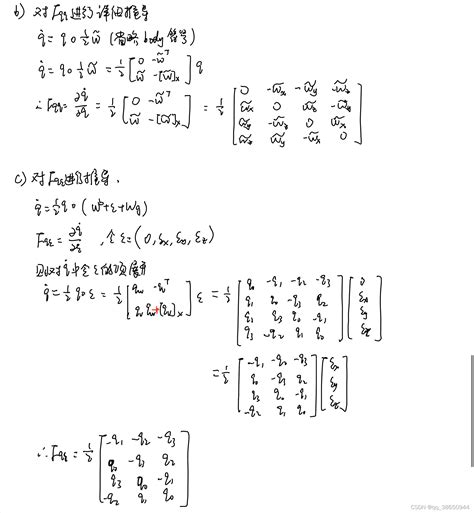 b) 对 Fqq 进行详细推导
q̇ = q∘½ω̃ (省略body符号)
q̇ = q∘½ω̃ = ½ [0 -ω̃ᵀ; ω̃ -[ω̃]ₓ] q
∴ Fqq = ∂q̇/∂q = ½ [0 -ω̃ᵀ; ω̃ -[ω̃]ₓ] = ½ [0 -ω̃x -ω̃y -ω̃z; ω̃x 0 ω̃z -ω̃y; ω̃y -ω̃z 0 ω̃x; ω̃z ω̃y -ω̃x 0]
c) 对 Fqε 进行推导.
q̇ = ½q∘(ω^b+ε+Wg)
Fqε = ∂q̇/∂ε , 令 ε=(0, εx, εy, εz)
则对q̇中含ε的项展开
q̇ = ½ q∘ε = ½ [q₀ -qᵥᵀ; qᵥ q₀+[qᵥ]ₓ] ε = ½ [q₀ -q₁ -q₂ -q₃; q₁ q₀ -q₃ q₂; q₂ q₃ q₀ -q₁; q₃ -q₂ q₁ q₀] [0; εx; εy; εz]
= ½ [-q₁ -q₂ -q₃; q₀ -q₃ q₂; q₃ q₀ -q₁; -q₂ q₁ q₀] [εx; εy; εz]
∴ Fqε = ½ [-q₁ -q₂ -q₃; q₀ -q₃ q₂; q₃ q₀ -q₁; -q₂ q₁ q₀]